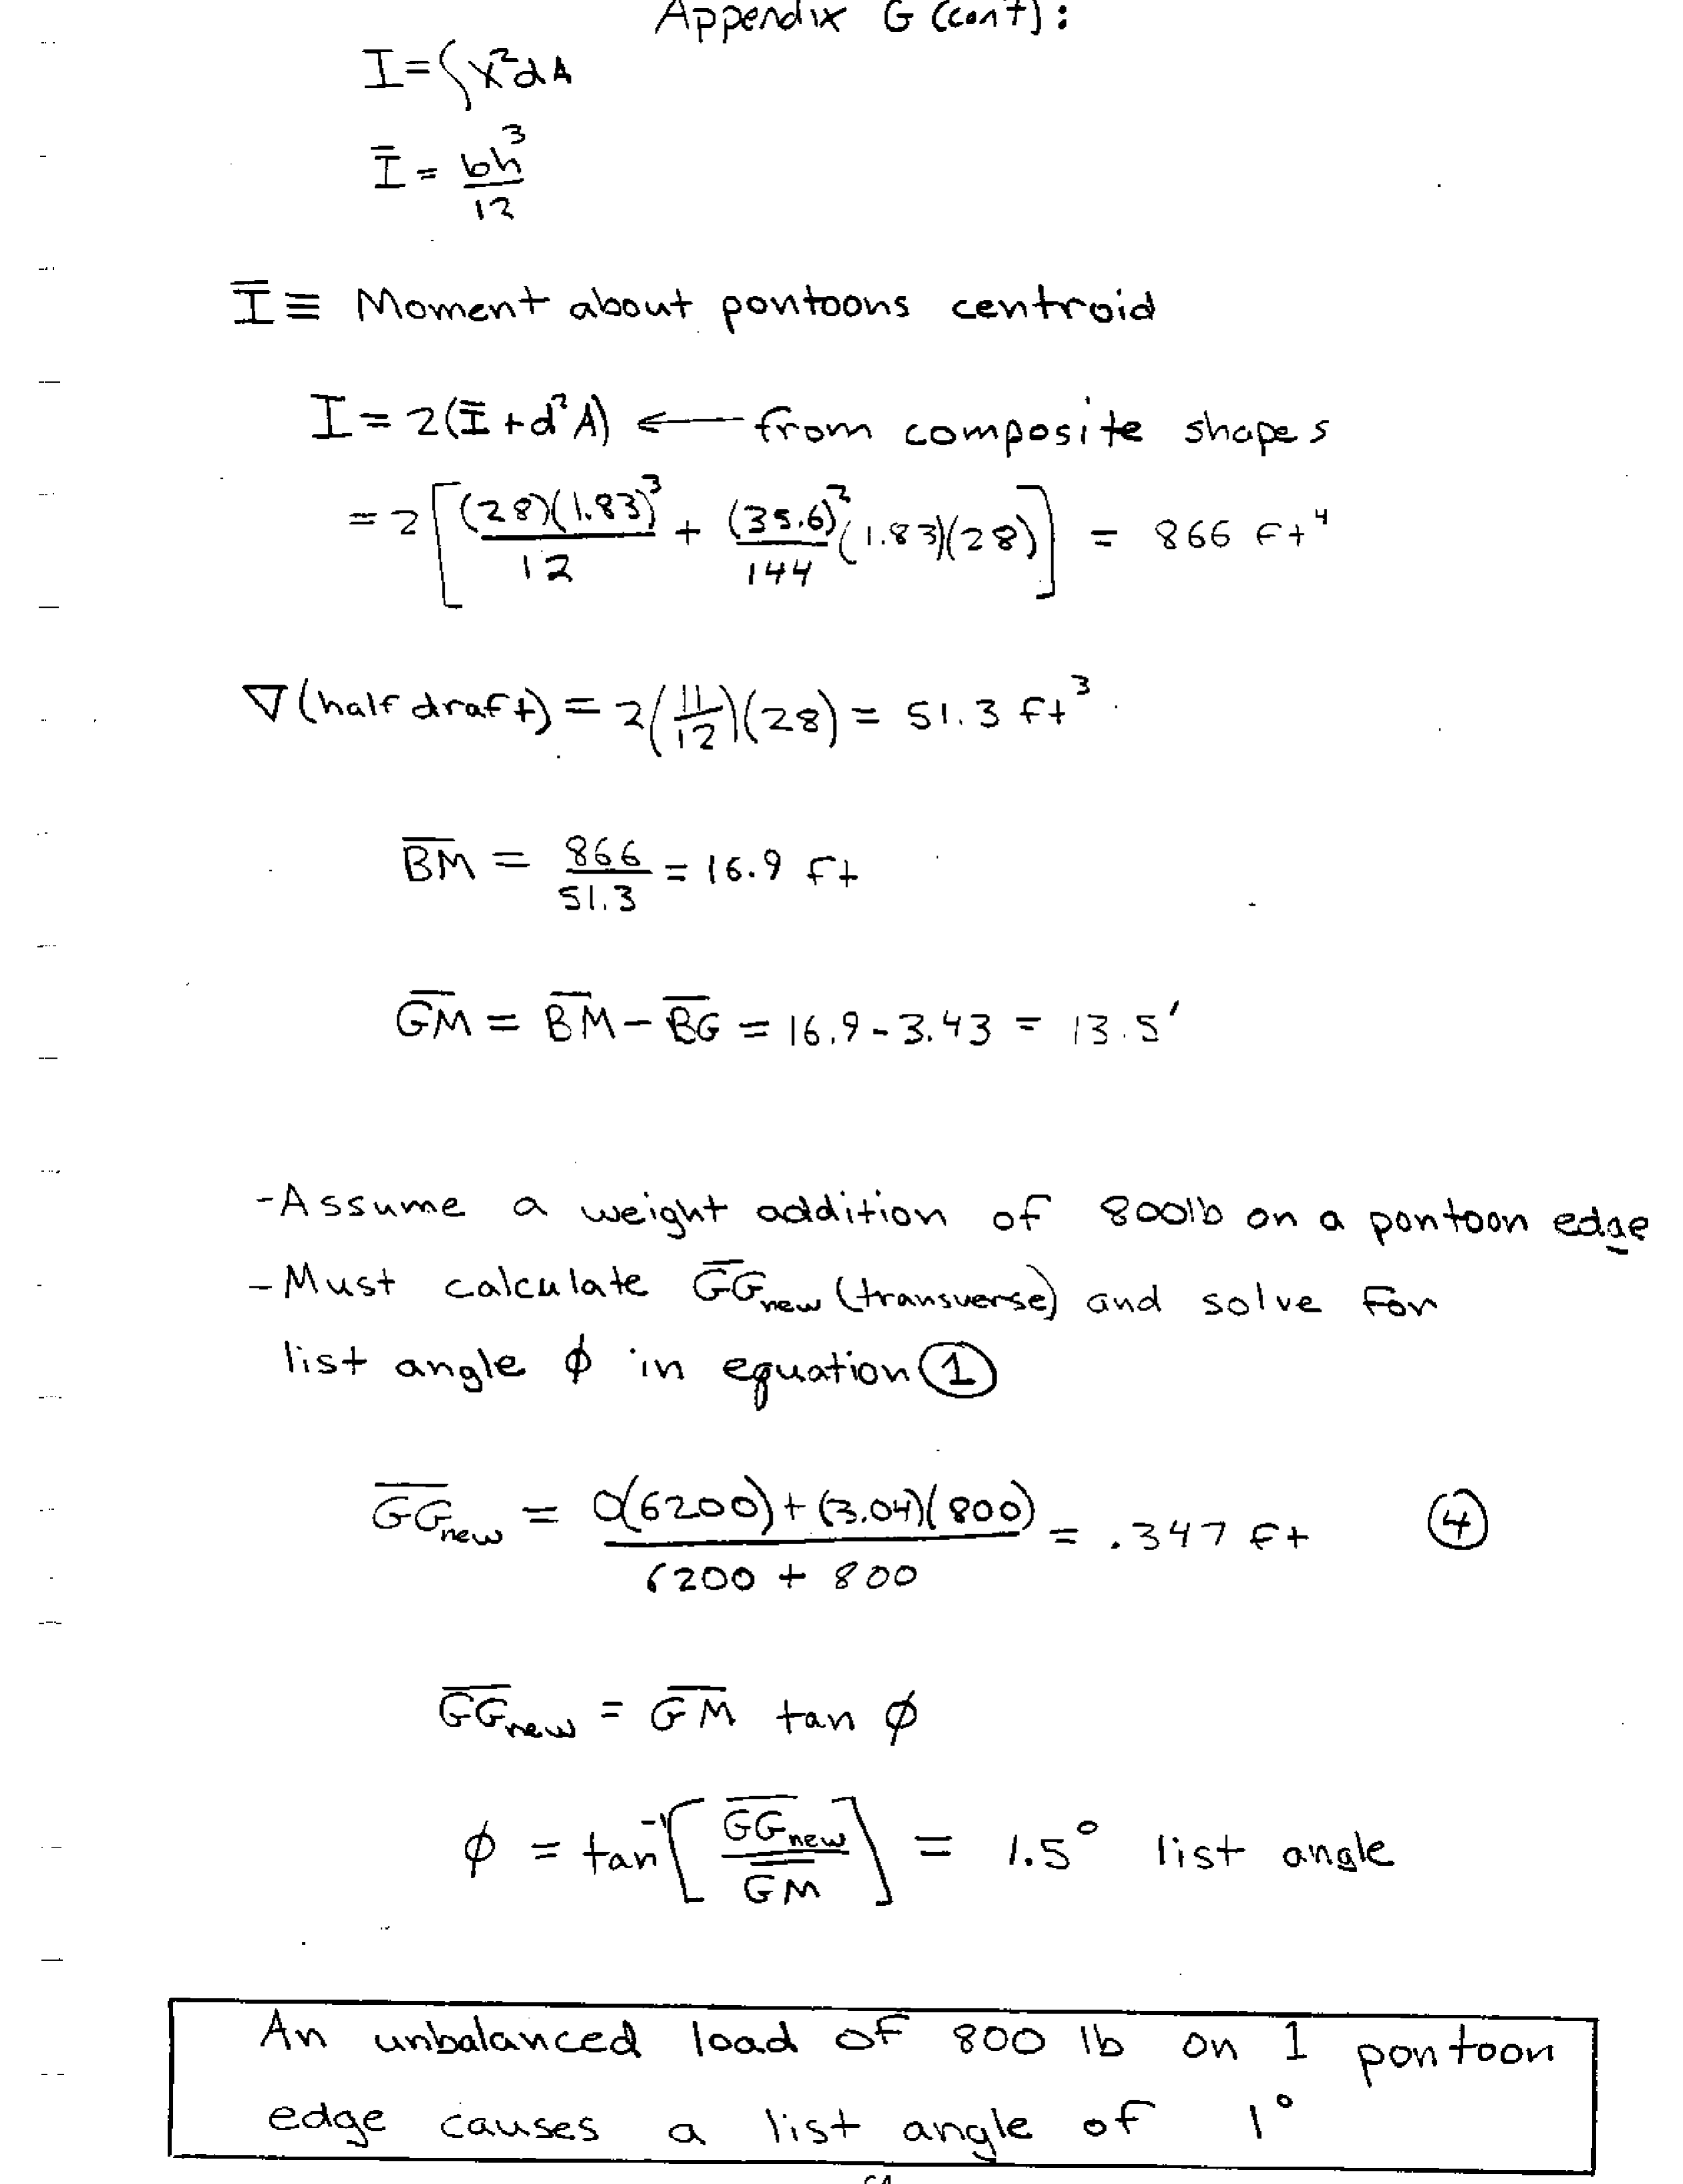 Appendix G (cont):
I = ∫x²dA
Ī = bh³/12
Ī ≡ Moment about pontoons centroid
I = 2(Ī + d²A) ← from composite shapes
= 2[(28)(1.83)³/12 + (35.6)²/144 (1.83)(28)] = 866 ft⁴
∇(half draft) = 2(11/12)(28) = 51.3 ft³
B̅M̅ = 866/51.3 = 16.9 ft
G̅M̅ = B̅M̅ - B̅G̅ = 16.9 - 3.43 = 13.5'
-Assume a weight addition of 800lb on a pontoon edge
-Must calculate G̅G̅new (transverse) and solve for
list angle ϕ in equation ①
G̅G̅new = 0(6200) + (3.04)(800)/6200 + 800 = .347 ft ④
G̅G̅new = G̅M̅ tan ϕ
ϕ = tan⁻¹[G̅G̅new/G̅M̅] = 1.5° list angle
An unbalanced load of 800 lb on 1 pontoon
edge causes a list angle of 1°